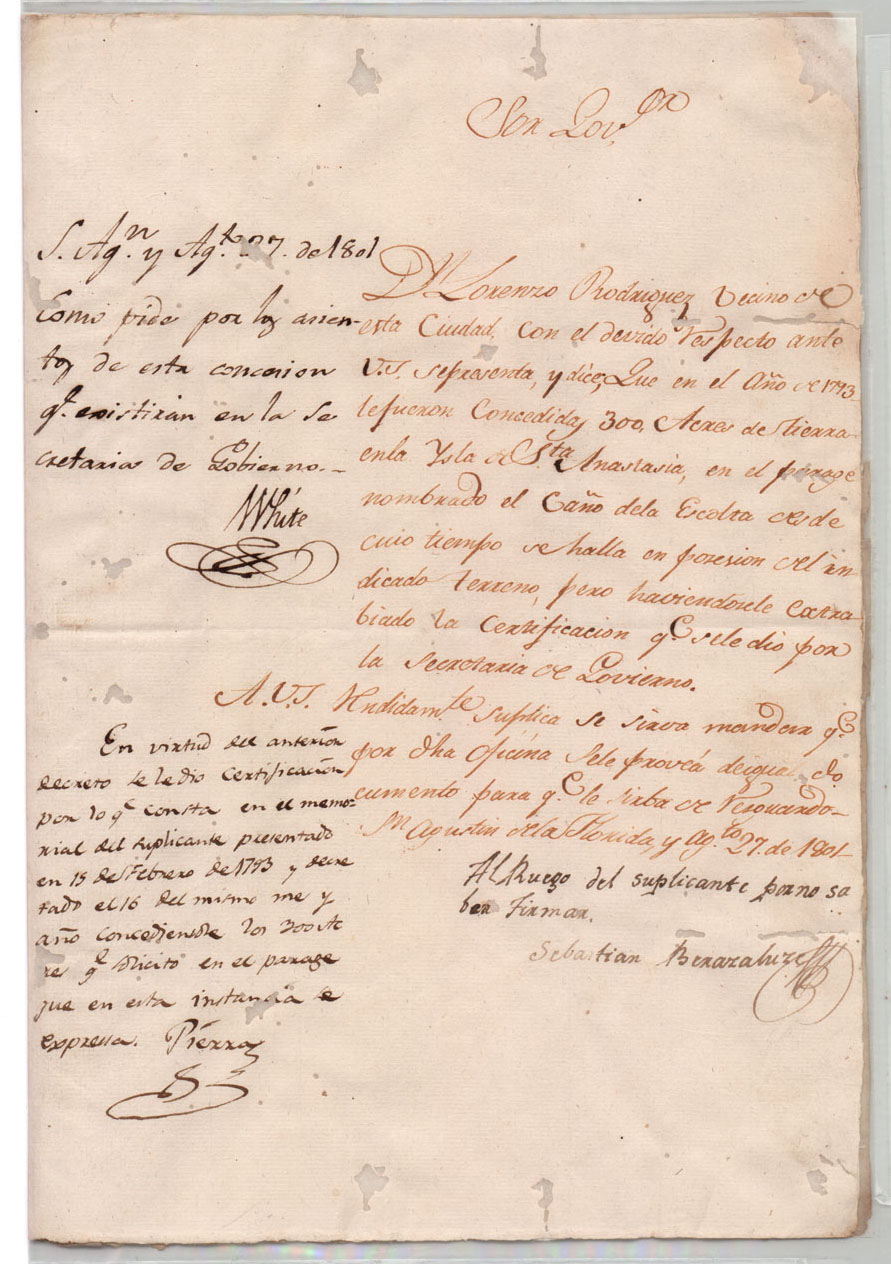 Sor Govor
S. Agn y Agto 27. de 1801
Como pide por los asien-
tos de esta concesion
qe existiran en la Se
cretaria de Gobierno.-
White
Dn Lorenzo Rodriguez Vecino de
esta Ciudad, con el devido respecto ante
V.S. se presenta, y dice, Que en el Año de 1793
le fueron Concedidas 300, Acres de tierra
en la Ysla de Sta Anastasia, en el parage
nombrado el Caño de la Escolta desde
cuio tiempo se halla en posesion del in
dicado terreno, pero haviendosele extra
biado la Certificacion qe se le dio por
la Secretaria de Govierno.
A.V.S. Rendidamte suplica se sirva mandar qe
por dha Oficina se le proveá de igual do
cumento para qe le sirba de resguardo-
Sn Agustin de la Florida, y Agto 27. de 1801
Al Ruego del suplicante por no sa
ber Firmar.
Sebastian Berazaluze
En virtud del anterior
decreto se le dio Certificacion
por lo qe consta en el memo-
rial del suplicante presentado
en 15 de Febrero de 1793 y decre
tado el 16 del mismo me y
año concediendole los 300 Ac
re qe solicito en el parage
que en esta instancia se
expressa. Pierra